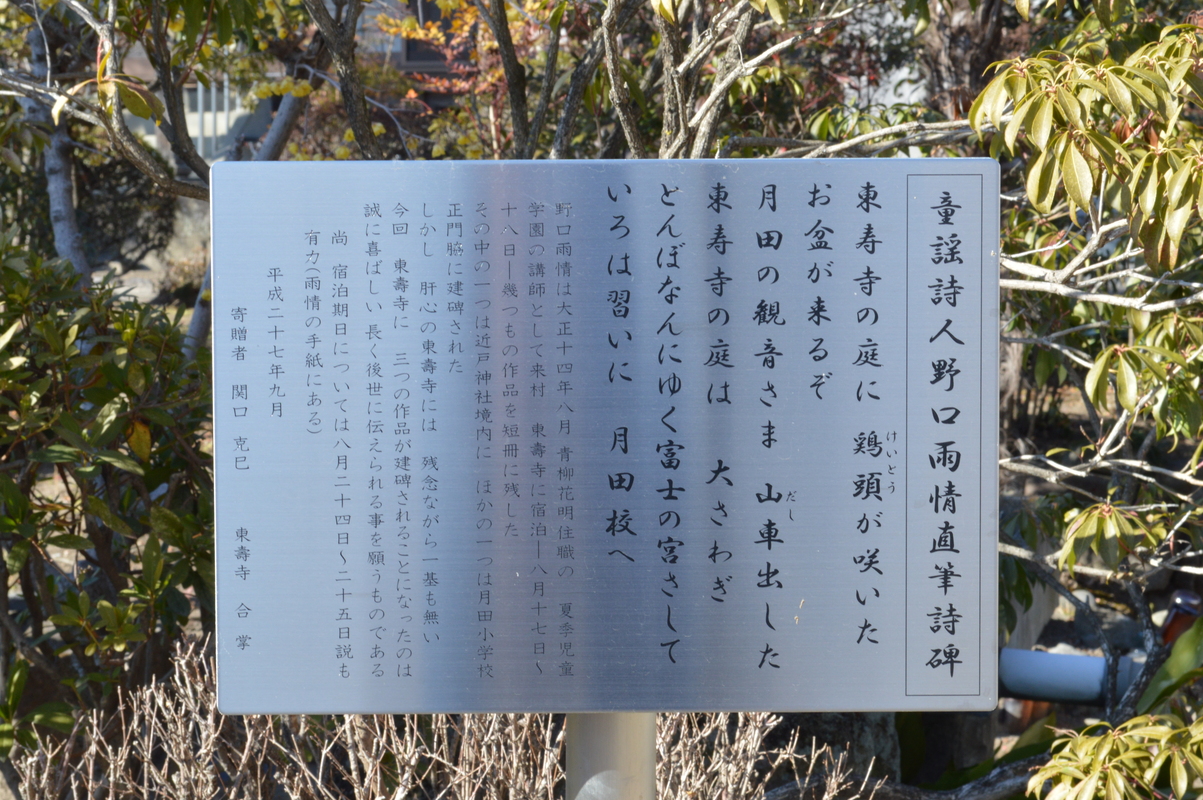 童謡詩人野口雨情直筆詩碑
東寿寺の庭に　鶏頭が咲いた
けいとう
お盆が来るぞ
月田の観音さま　山車出した
だし
東寿寺の庭は　大さわぎ
とんぼなんにゆく富士の宮さして
いろは習いに　月田校へ
野口雨情は大正十四年八月　青柳花明住職の　夏季児童
学園の講師として来村　東壽寺に宿泊―八月十七日〜
十八日―幾つもの作品を短冊に残した
その中の一つは近戸神社境内に　ほかの一つは月田小学校
正門脇に建碑された
しかし　肝心の東壽寺には　残念ながら一基も無い
今回　東壽寺に　三つの作品が建碑されることになったのは
誠に喜ばしい　長く後世に伝えられる事を願うものである
尚　宿泊期日については八月二十四日〜二十五日説も
有力（雨情の手紙にある）
平成二十七年九月
寄贈者　関口　克巳　　東壽寺　合　掌